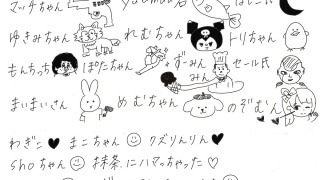 マッチちゃん
ゆきみちゃん れむちゃん トリちゃん
もんちっち ぽりたちゃん ずみんみん セール氏
まいまいさん めむちゃん のぞむん
わぎこ♥ まこちゃん☺ クズりんりん♥
shoちゃん☺ 抹茶にハマっちゃった♡